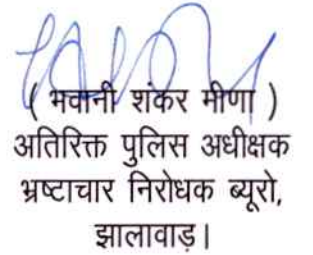 ( भवानी शंकर मीणा )
अतिरिक्त पुलिस अधीक्षक
भ्रष्टाचार निरोधक ब्यूरो,
झालावाड़।